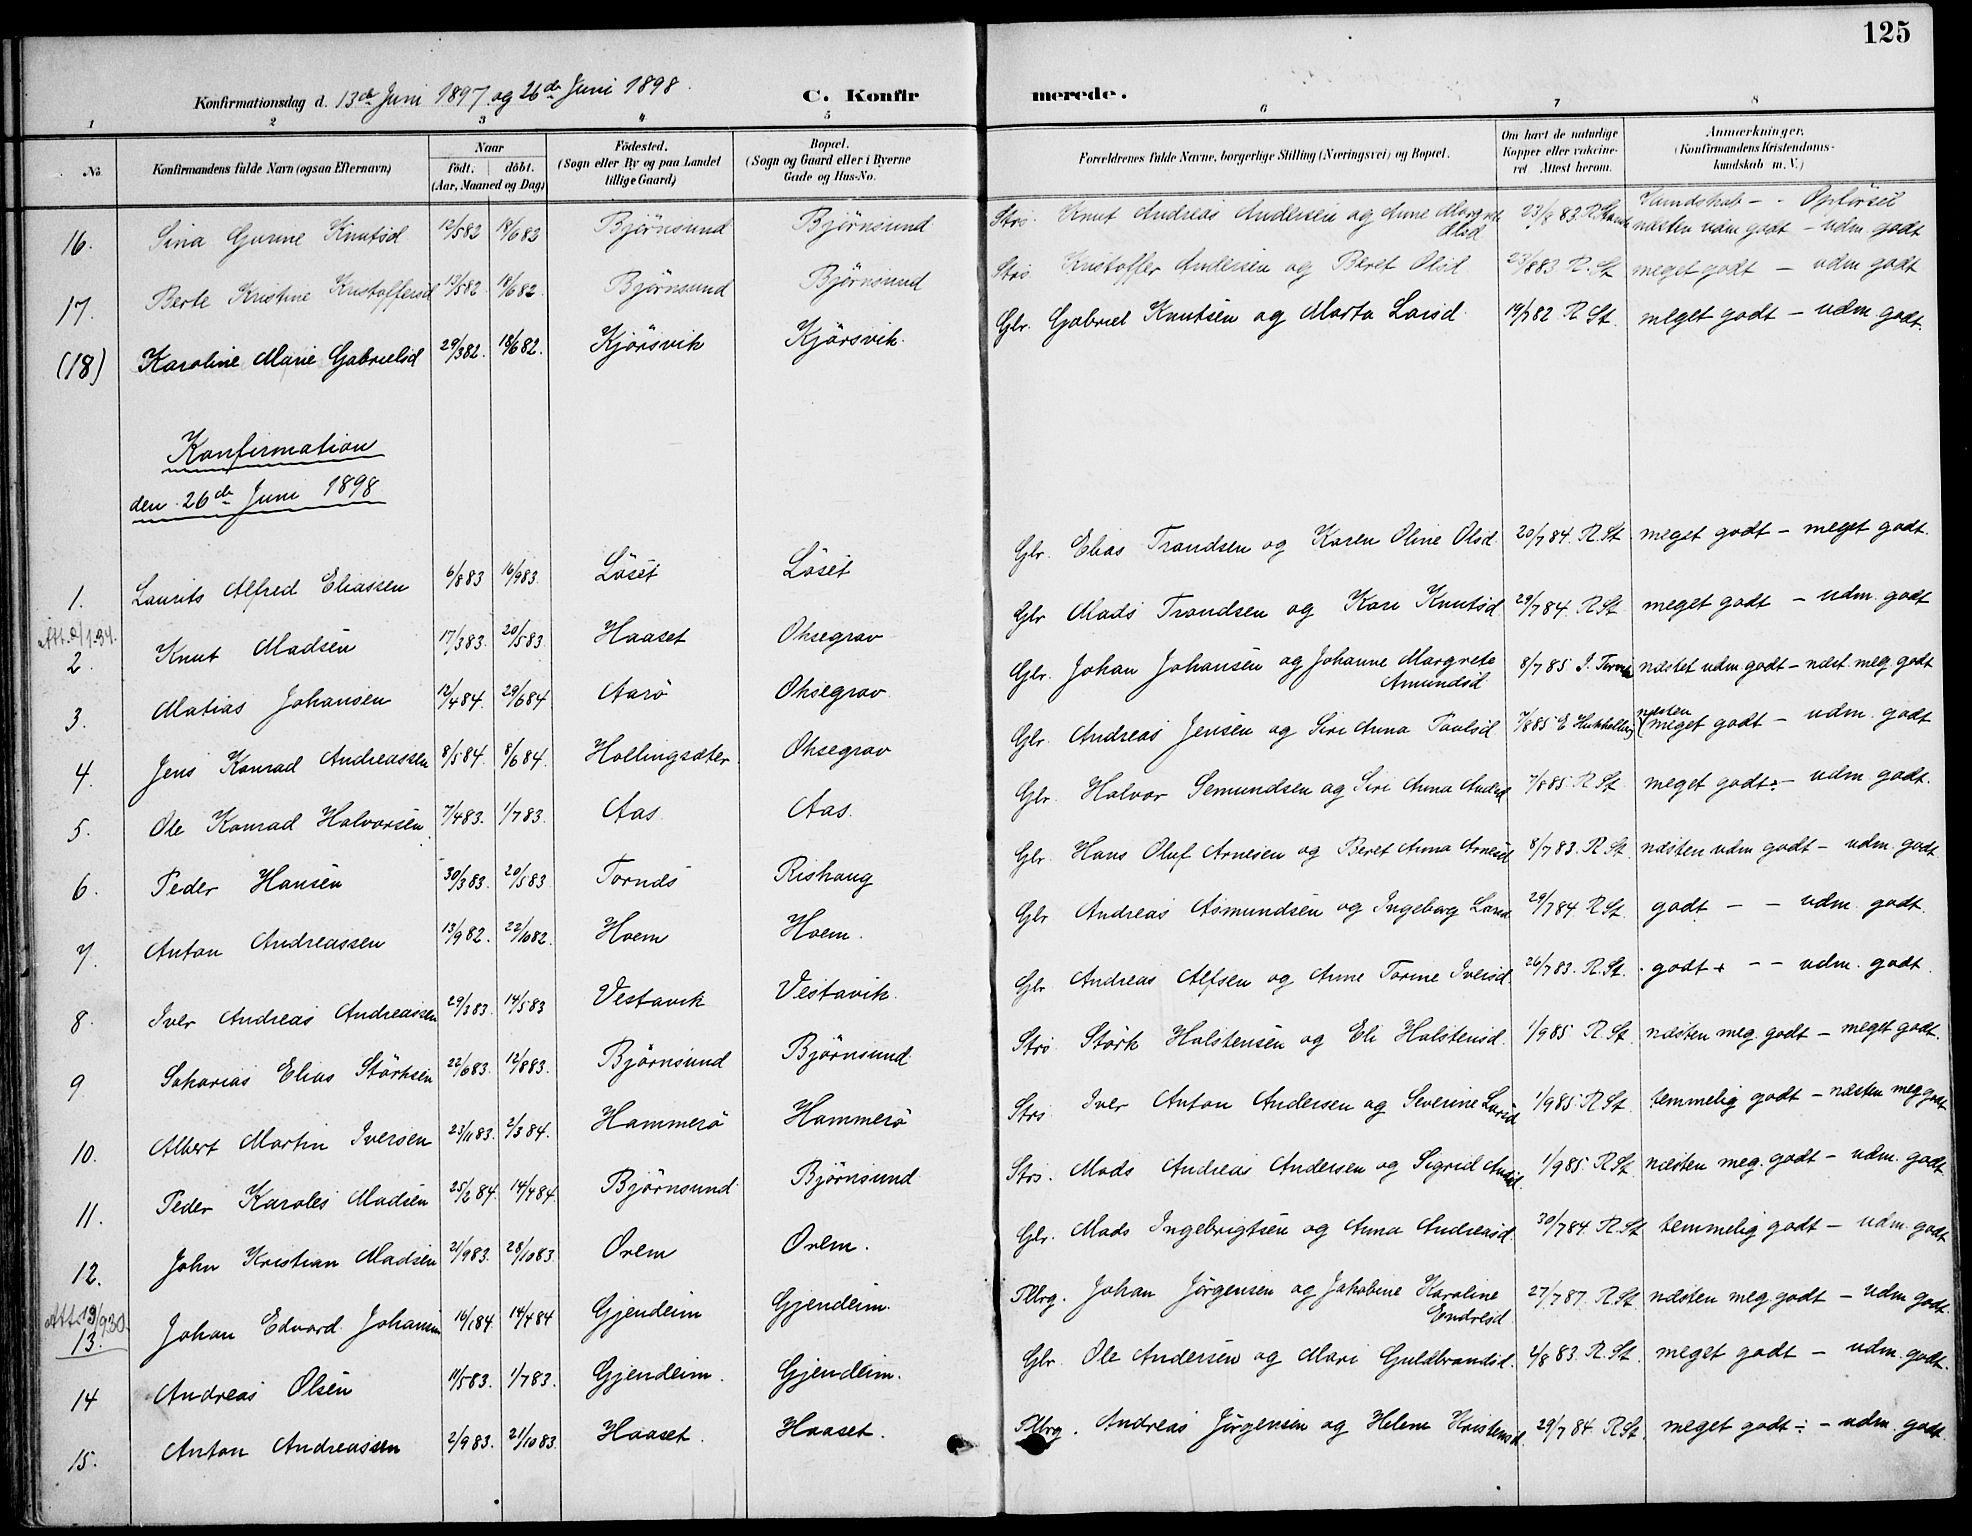 125
Konfirmationsdag d. 13de Juni 1897 og 26de Juni 1898. C. Konfirmerede.
1 2 3 4 5 6 7 8
No. Konfirmandens fulde Navn (ogsaa Efternavn) Naar født. døbt. (Aar, Maaned og Dag) Födested. (Sogn eller By og paa Landet tillige Gaard) Bopæl. (Sogn og Gaard eller i Byerne Gade og Hus-No. Forældrenes fulde Navne, borgerlige Stilling (Næringsvei) og Bopæl. Om havt de naturlige Kopper eller vakcineret Attest herom. Anmærkninger. (Konfirmandens Kristendomskundskab m. V.)
Kundskab - - Opförsel
16. Sina Gurine Knutsd 12/5 82 18/6 82 Björnsund Björnsund Strs. Knut Andreas Andersen og Anne Margrete Olsd 23/8 83 R. næsten udm godt - udm. godt
17. Berte Kristine Kristoffersd 13/5 82 18/6 82. Björnsund Björnsund Strs. Kristoffer Andersen og Beret Olsd 23/8 83 R. St meget godt - udm godt
(18) Karoline Marie Gabrielsd 29/3 82. 18/6 82. Kjörsvik Kjörsvik. Glr. Gabriel Knutsen og Marta Larsd. 19/7 82 R St. meget godt - udm. godt.
Konfirmation
den 26de Juni 1898
1. Laurits Alfred Eliassen 6/8 83 16/9 83. Löset Löset Glr. Elias Trondsen og Karen Oline Olsd 20/7 84. R. St meget godt - meget godt.
2. Knut Madsen 17/3 83. 20/5 83. Haaset Ohsegrav Glr Mads Trondsen og Kari Knutsd 29/7 84. R St. meget godt - udm. godt
3. Matias Johansen 12/4 84. 29/6 84 Aarö Ohsegrav. Glr. Johan Johansen og Johanne Margrete Amundsd 8/7 85 næstet udm godt - næst. meg godt
4. Jens Konrad Andreassen 8/5 84. 8/6 84. Hollingsæter Ohsegrav Glr. Andreas Jensen og Siri Anna Paulsd 7/8 85 næsten meget godt - udm. godt
5. Ole Konrad Halvorsen 7/4 83. 1/7 83. Aas. Aas. Glr. Halvor Semundsen og Siri Anna Andsd 7/8 85. R St. meget godt÷ - udm. godt.
6. Peder Hansen 30/3 83. 20/5 83. Tornds Rishaug Glr. Hans Oluf Arnesen og Beret Anna Arnesd 8/7 83. R St. næsten udm. godt - udm. godt
7. Anton Andreassen 13/9 82. 22/10 82. Hoem Hoem. Glr Andreas Asmundsen og Ingeborg Larsd. 29/7 84. R St. godt - - udm. godt.
8. Iver Andreas Andreassen 29/3 83. 14/5 83 Vestavik Vestavik. Glr Andreas Alfsen og Anne Torine Iversd. 26/7 83. R. St. godt + - - udm. godt.
9 Sakarias Elias Störksen 22/6 83. 12/8 83. Björnsund Björnsund. Strs. Störk Halstensen og Eli Halstensd. 1/9 85. R. St. næsten meg. godt - meget godt.
10. Albert Martin Iversen 23/11 83. 2/3 84. Hammerö Hammerö Strs. Iver Anton Andersen og Severine Larsd 1/9 85. R. St. temmelig godt - næsten meg godt
11. Peder Karoles Madsen 25/2 84. 14/4 84 Björnsund Björnsund Strs. Mads Andreas Andersen og Sigrid Andsd. 1/9 85. R St. næsten meg. godt - udm. godt.
12. John Kristian Madsen 21/9 83. 28/10 83. Orem Orem. Glr. Mads Ingebrigtsen og Anna Andreasd. 30/7 84. R. St temmelig godt - udm. godt
13. Johan Edvard Johansen 16/1 84. 14/4 84 Gjendeim Gjendeim. Johan Jörgensen og Jakobine Karoline Endresd. 27/7 87. R. St næsten meg. godt - udm. godt.
14 Andreas Olsen 11/5 83. 1/7 83. Gjendeim. Gjendeim. Glr. Ole Andersen og Mari Guldbrandsd. 4/8 83. R. St. meget godt - udm. godt.
15. Anton Andreassen 2/9 83. 21/10 83. Haaset. Haaset. Andreas Jörgensen og Helene Kristensd. 29/7 84. R St. meget godt÷ - udm. godt.